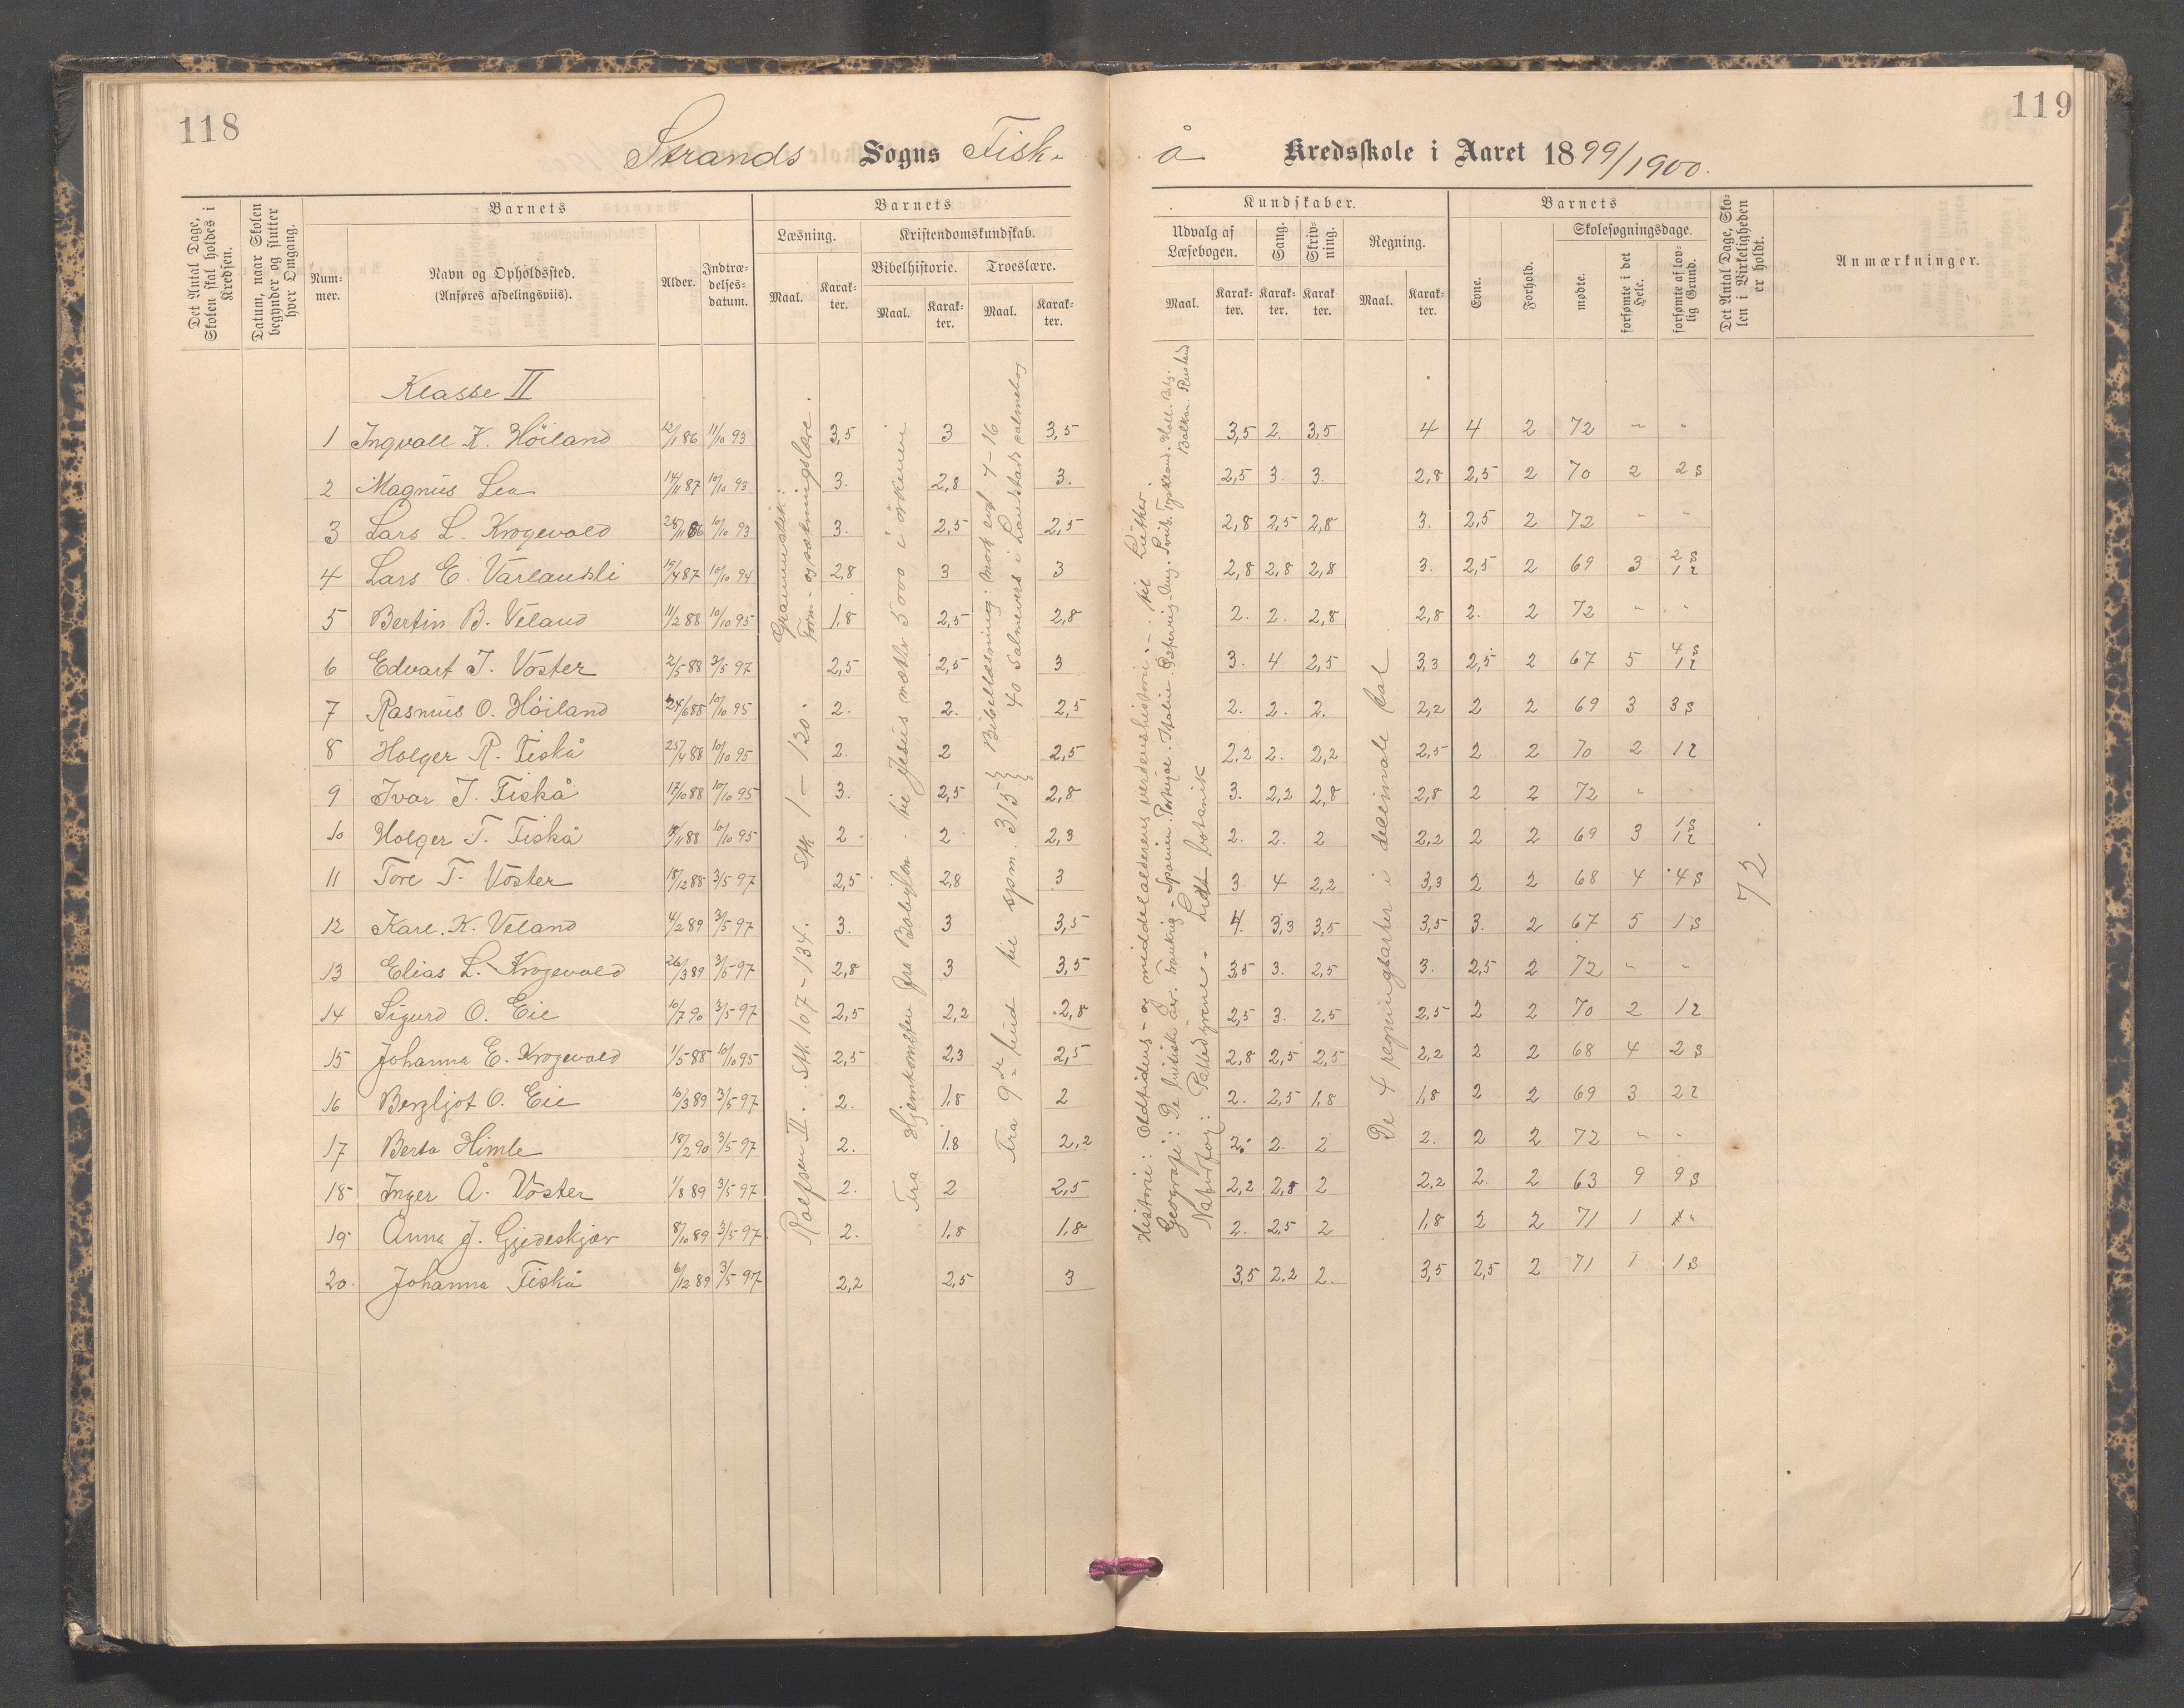 118
119
Strands Sogns Fisk-
å Kredsskole i Aaret 1899/1900.
Det Antal Dage, Skolen skal holdes i Kredsen.
Datum, naar Skolen begynder og slutter hver Omgang.
Barnets
Nummer.
Navn og Opholdssted.
(Anføres afdelingsviis).
Alder.
Indtrædelses-datum.
Barnets
Læsning.
Maal.
Karakter.
Kristendomskundskab.
Bibelhistorie.
Maal.
Karakter.
Troeslære.
Maal.
Karakter.
Kundskaber.
Udvalg af Læsebogen.
Maal.
Karakter.
Sang.
Karakter.
Skrivning.
Karakter.
Regning.
Maal.
Karakter.
Barnets
Evne.
Forhold.
Skolesøgningsdage.
mødte.
forsømte i det Hele.
forsømte af lovlig Grund.
Det Antal Dage, Skolen i Virkeligheden er holdt.
Anmærkninger.
Klasse II
1 Ingvall K. Høiland 12/1 86 11/10 93 3,5 3 3,5 3,5 2. 3,5 4 4 2 72 " "
2 Magnus Lea 14/11 87 10/10 93 3. 2,8 3. 2,5 3. 3. 2,8 2,5 2 70 2 2 s
3 Lars L. Krogevold 28/11 86 10/10 93 3. 2,5 2,5 2,8 2,5 2,8 3. 2,5 2 72 " "
4 Lars E. Varlandsli 19/4 87 10/10 94 2,8 3 3 2,8 2,8 2,8 3. 2,5 2 69 3 2 s 1 l
5 Bertin B. Veland 11/2 88 10/10 95 1,8 2,5 2,8 2. 2. 2,8 2,8 2. 2 72 " "
6 Edvart J. Voster 2/5 88 3/5 97 2,5 2,5 3 3. 4 2,5 3,3 2,5 2 67 5 4 s 1 l
7 Rasmus O. Høiland 24/6 88 10/10 95 2. 2. 2,5 2. 2. 2. 2,2 2 2 69 3 3 s
8 Holger R. Fiskå 25/4 88 10/10 95 2. 2 2,5 2,2 2. 2,2 2,5 2 2 70 2 1 l
9 Ivar J. Fiskå 17/10 88 10/10 95 3. 2,5 2,8 3. 2,2 2,8 2,8 2 2 72 " "
10 Holger T. Fiskå /11 88 10/10 95 2 2 2,3 2. 2. 2 2,2 2 2 69 3 1 s 1 l
11 Tore T. Voster 18/12 88 3/5 97 2,5 2,8 3 3. 4 2,2 3,3 2 2 68 4 4 s
12 Karl. K. Veland 4/2 89 3/5 97 3. 3 3,5 4. 3,3 3,5 3,5 3. 2 67 5 1 s
13 Elias L. Krogevold 26/3 89 3/5 97 2,8 3 3,5 3,5 3. 2,5 3. 2,5 2 72 " "
14 Sigurd O. Eie 10/7 90 3/5 97 2,5 2,2 2,8 2,5 3. 2,5 2,5 2 2 70 2 1 l
15 Johanna E. Krogevold 1/5 88 10/10 95 2,5 2,3 2,5 2,8 2,5 2,5 2,2 2 2 68 4 2 s
16 Bergljot O. Eie 10/3 89 3/5 97 2. 1,8 2 2. 2,5 1,8 1,8 2 2 69 3 2 l
17 Berta Himle 18/2 90 3/5 97 2. 1,8 2,2 2. 2. 2 2. 2 2 72 " "
18 Inger Å. Voster 1/8 89 3/5 97 2. 2 2,5 2,2 2,8 2 2,2 2. 2 63 9 9 s
19 Anna J. Gjedeskjær 8/10 89 3/5 97 2. 1,8 1,8 2. 2,5 2 1,8 2 2 71 1
20. Johanna Fiskå 6/12 89 3/5 97 2,2 2,5 3 3,5 2,2 2. 3,5 2,5 2 71 1 1 s
Rolfsen II. Stk 107-134. Stk 1-120. Grammatik: Form- og sætningslære.
Fra Hjemkomsten fra Babylon til Jesus mætter 5000 i ørkenen
Fra 9de bud til spm. 315
Bibellæsning: Mark. ev. 7-16
40 salmevers i Landstads salmebog
Historie: Oldtidens- og middelalderens verdenshistorie - til Luther.
Geografi: De britiske øer. Frankrig - Spanien. Portugal. Italien. Østerrig-Ung. Sveits. Tyskland. Holl. Belg. Balkan. Rusland
Naturfag: Pattedyrene - Lidt botanik
De 4 regningsarter i decimale tal
72.